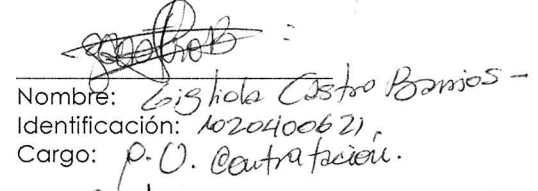 Nombre: Gigliola Castro Barrios -
Identificación: 1020400621,
Cargo: P.U. Contratación.